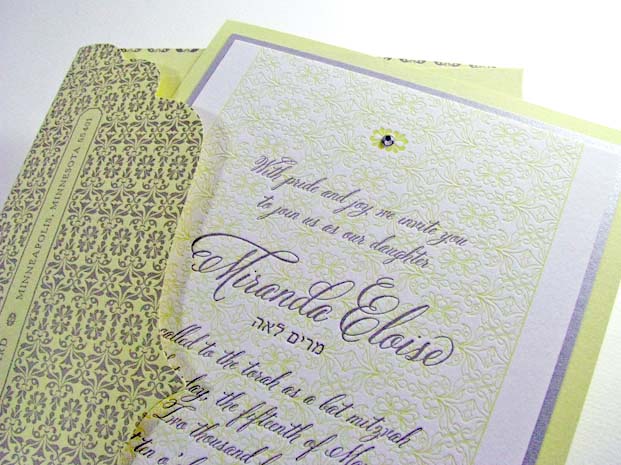 With pride and joy, we invite you
to join us as our daughter
Miranda Eloise
מרים לאה
called to the torah as a bat mitzvah
day, the fifteenth of
Two thousand
o'
MINNEAPOLIS, MINNESOTA 55401